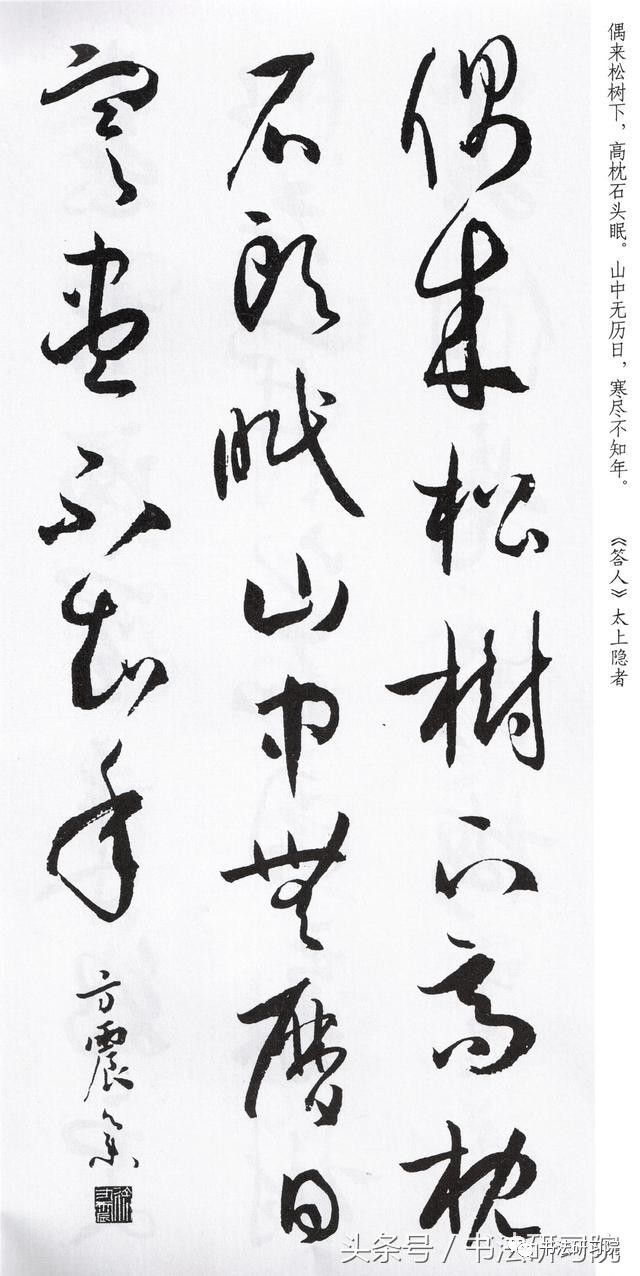 偶来松树下，高枕石头眠。山中无历日，寒尽不知年。 《答人》太上隐者
偶来松樹下高枕
石頭眠山中無曆日
寒尽不知年
方震篆
头条号 / 书法研习院
书法研习院